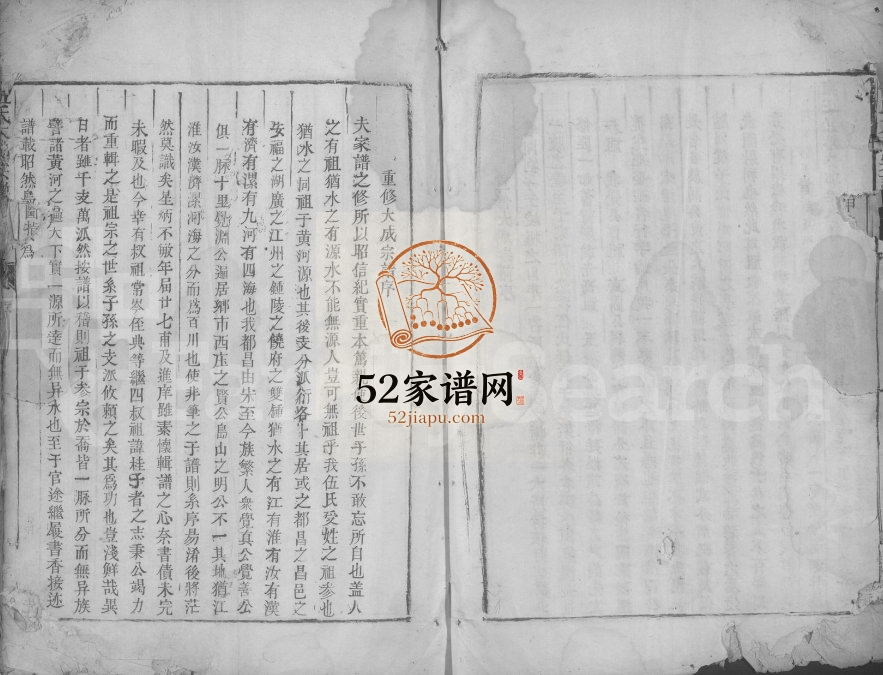 重修大成宗譜序
夫家譜之修所以昭信紀實重本篤後世子孫不敢忘所自也盖人
之有祖猶水之有源水不能無源人豈可無祖乎我伍氏受姓之祖参也
猶水之同祖于黄河源也其後支分派衍各卜其居或之都昌之昌邑之
安福之湖廣之江州之鍾陵之饒府之雙鍾猶水之有江有淮有汝有漢
有濟有漯有九河有四海也我都昌由宋至今族繁人衆覺真公覺善公
俱一脉十里覺淵公漏居鄉市西庄之賢公島山之明公不一其地猶江
淮汝漢濟漯河海之分而爲百川也使非筆之于譜則系序易淆後將茫
然莫識矣星炳不敏年届廿七甫及進庠雖素懷輯譜之心奈書債未完
未暇及也今幸有叔祖常岑侄典等繼四叔祖諱桂子者之志秉公竭力
而重輯之是祖宗之世系子孫之支派攸賴之矣其爲功也豈淺鮮哉異
日者雖千支萬派然按譜以稽則祖于参宗於喬皆一脉所分而無异族
譬諸黄河之遶天下實一源所達而無异水也至于官途繼履書香接迹
譜載昭然爲
52家谱网
52jiapu.com
earch